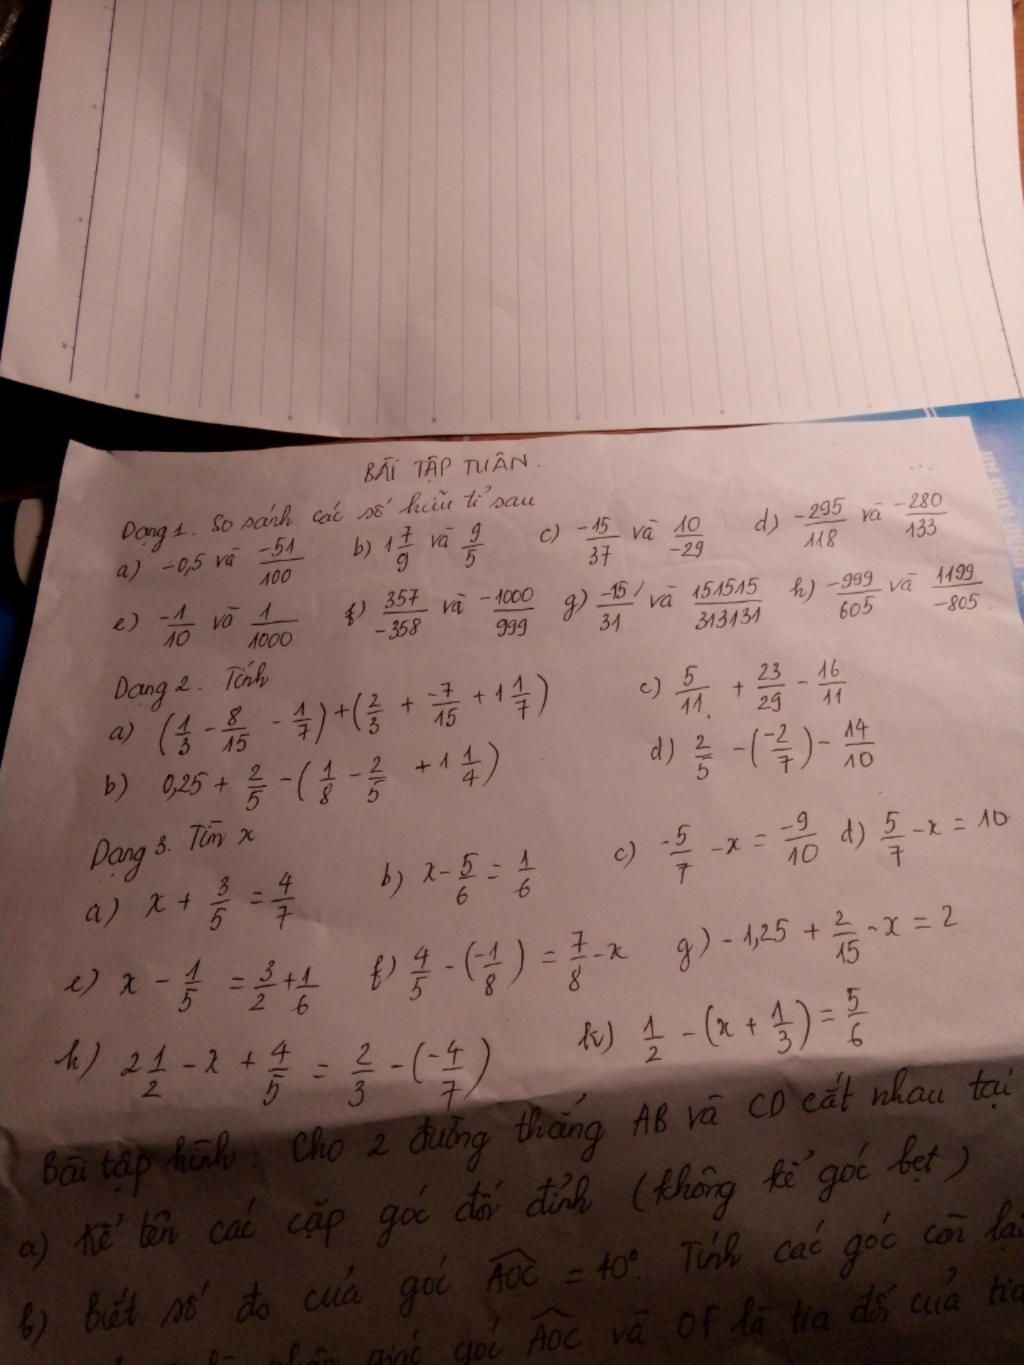 BÀI TẬP TUẦN.
Dạng 1. So sánh các số hữu tỉ sau
a) -0,5 và -51/100 b) 1 7/9 và 9/5 c) -15/37 và 10/-29 d) -295/118 và -280/133
e) -1/10 và 1/1000 f) 357/-358 và -1000/999 g) -15/31 và 151515/313131 h) -999/605 và 1199/-805
Dạng 2. Tính
a) (1/3 - 8/15 - 1/7) + (2/3 + -7/15 + 1 1/7) c) 5/11 + 23/29 - 16/11
b) 0,25 + 2/5 - (1/8 - 2/5 + 1 1/4) d) 2/5 - (-2/7) - 14/10
Dạng 3. Tìm x
a) x + 3/5 = 4/7 b) x - 5/6 = 1/6 c) -5/7 - x = -9/10 d) 5/7 - x = 10
e) x - 1/5 = 3/2 + 1/6 f) 4/5 - (-1/8) = 7/8 - x g) -1,25 + 2/15 - x = 2
h) 2 1/2 - x + 4/5 = 2/3 - (-4/7) k) 1/2 - (x + 1/3) = 5/6
Bài tập hình: Cho 2 đường thẳng AB và CD cắt nhau tại
a) Kể tên các cặp góc đối đỉnh (không kể góc bẹt)
b) Biết số đo của góc AOC = 40°. Tính các góc còn lại
phân giác góc AOC và OF là tia đối của tia